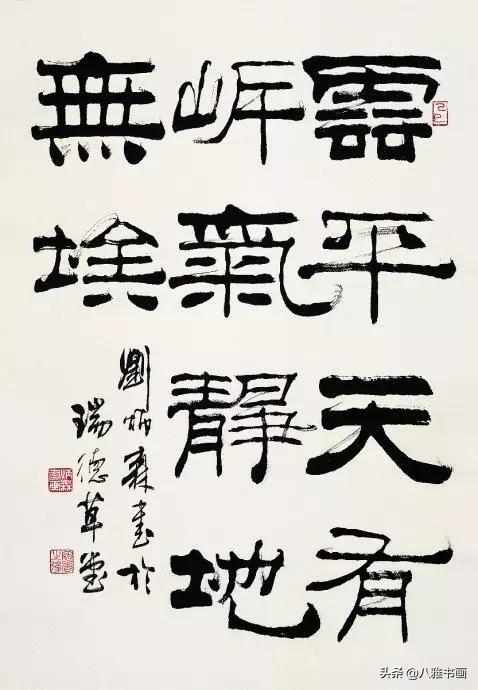 平天有
氣靜地
無埃
劉炳森書於
瑞德草堂
头条 @八雅书画